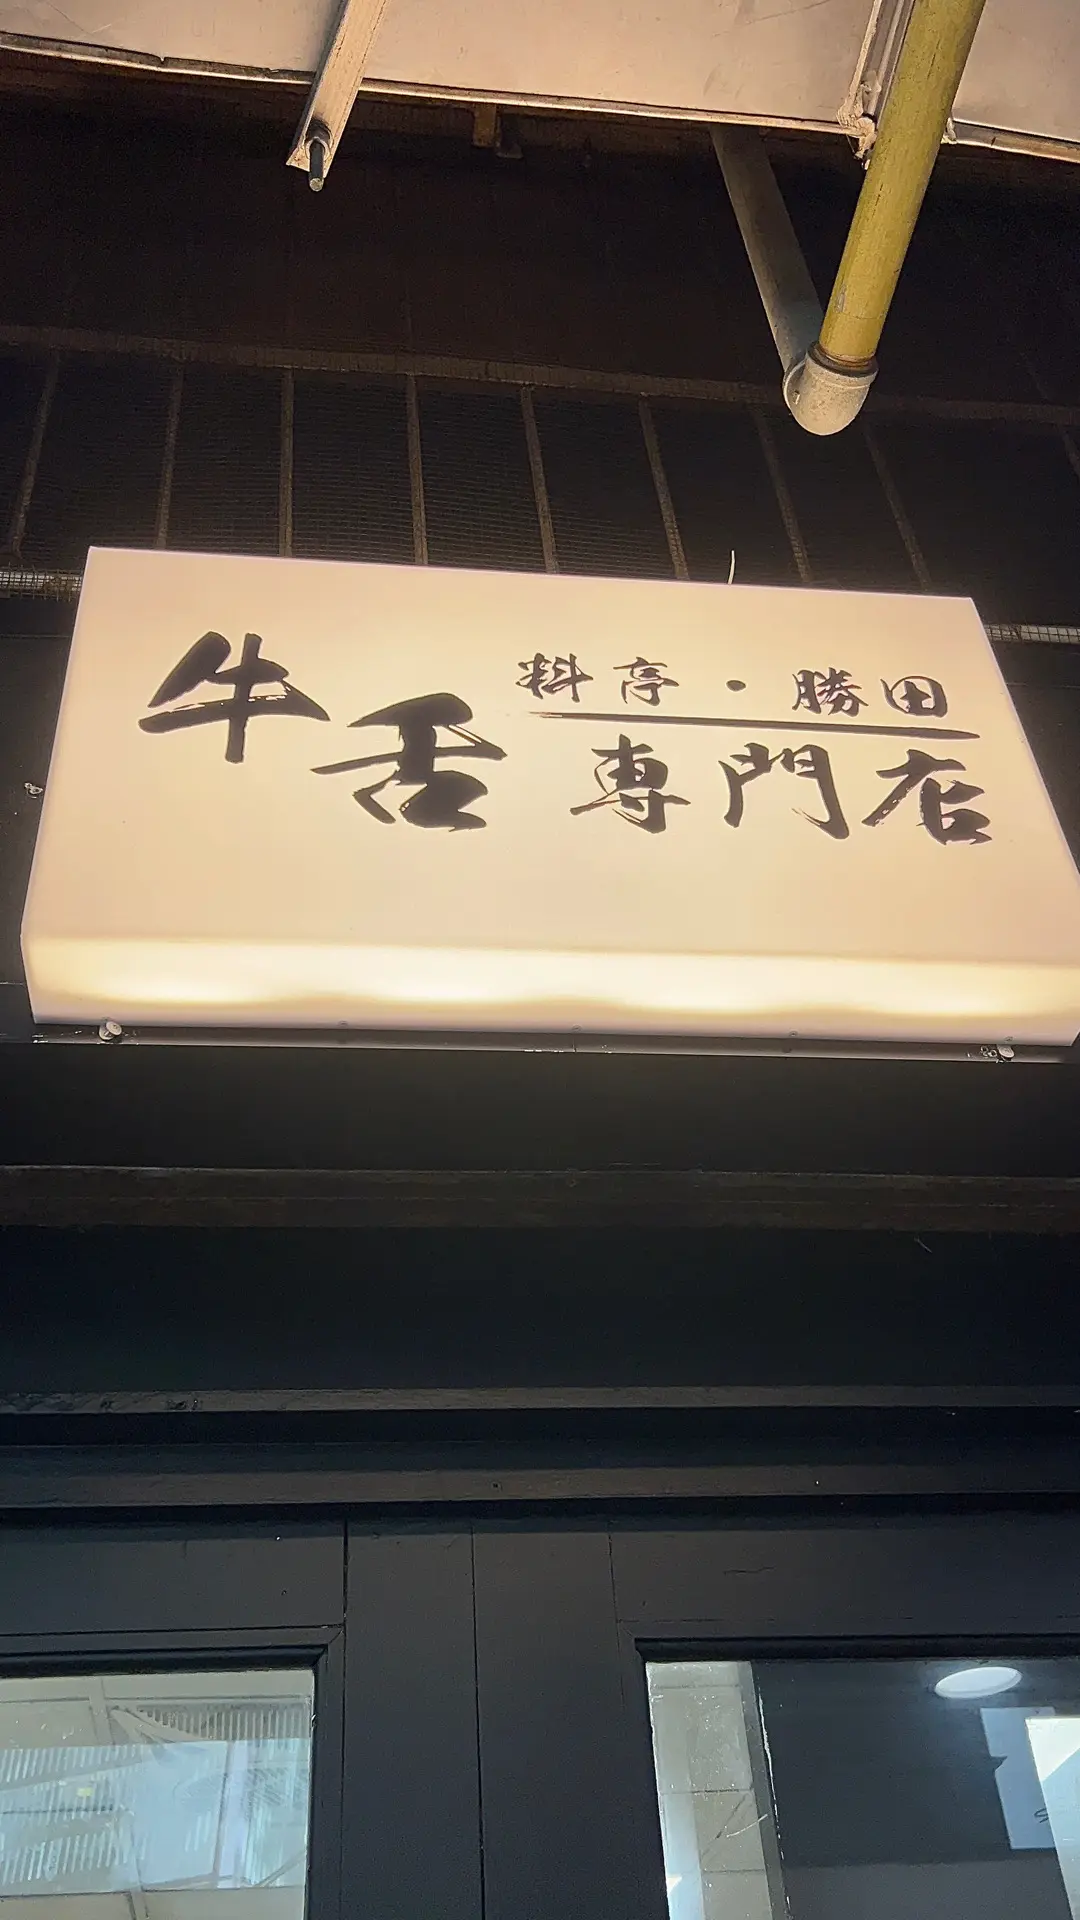 牛舌
料亭・勝田
専門店